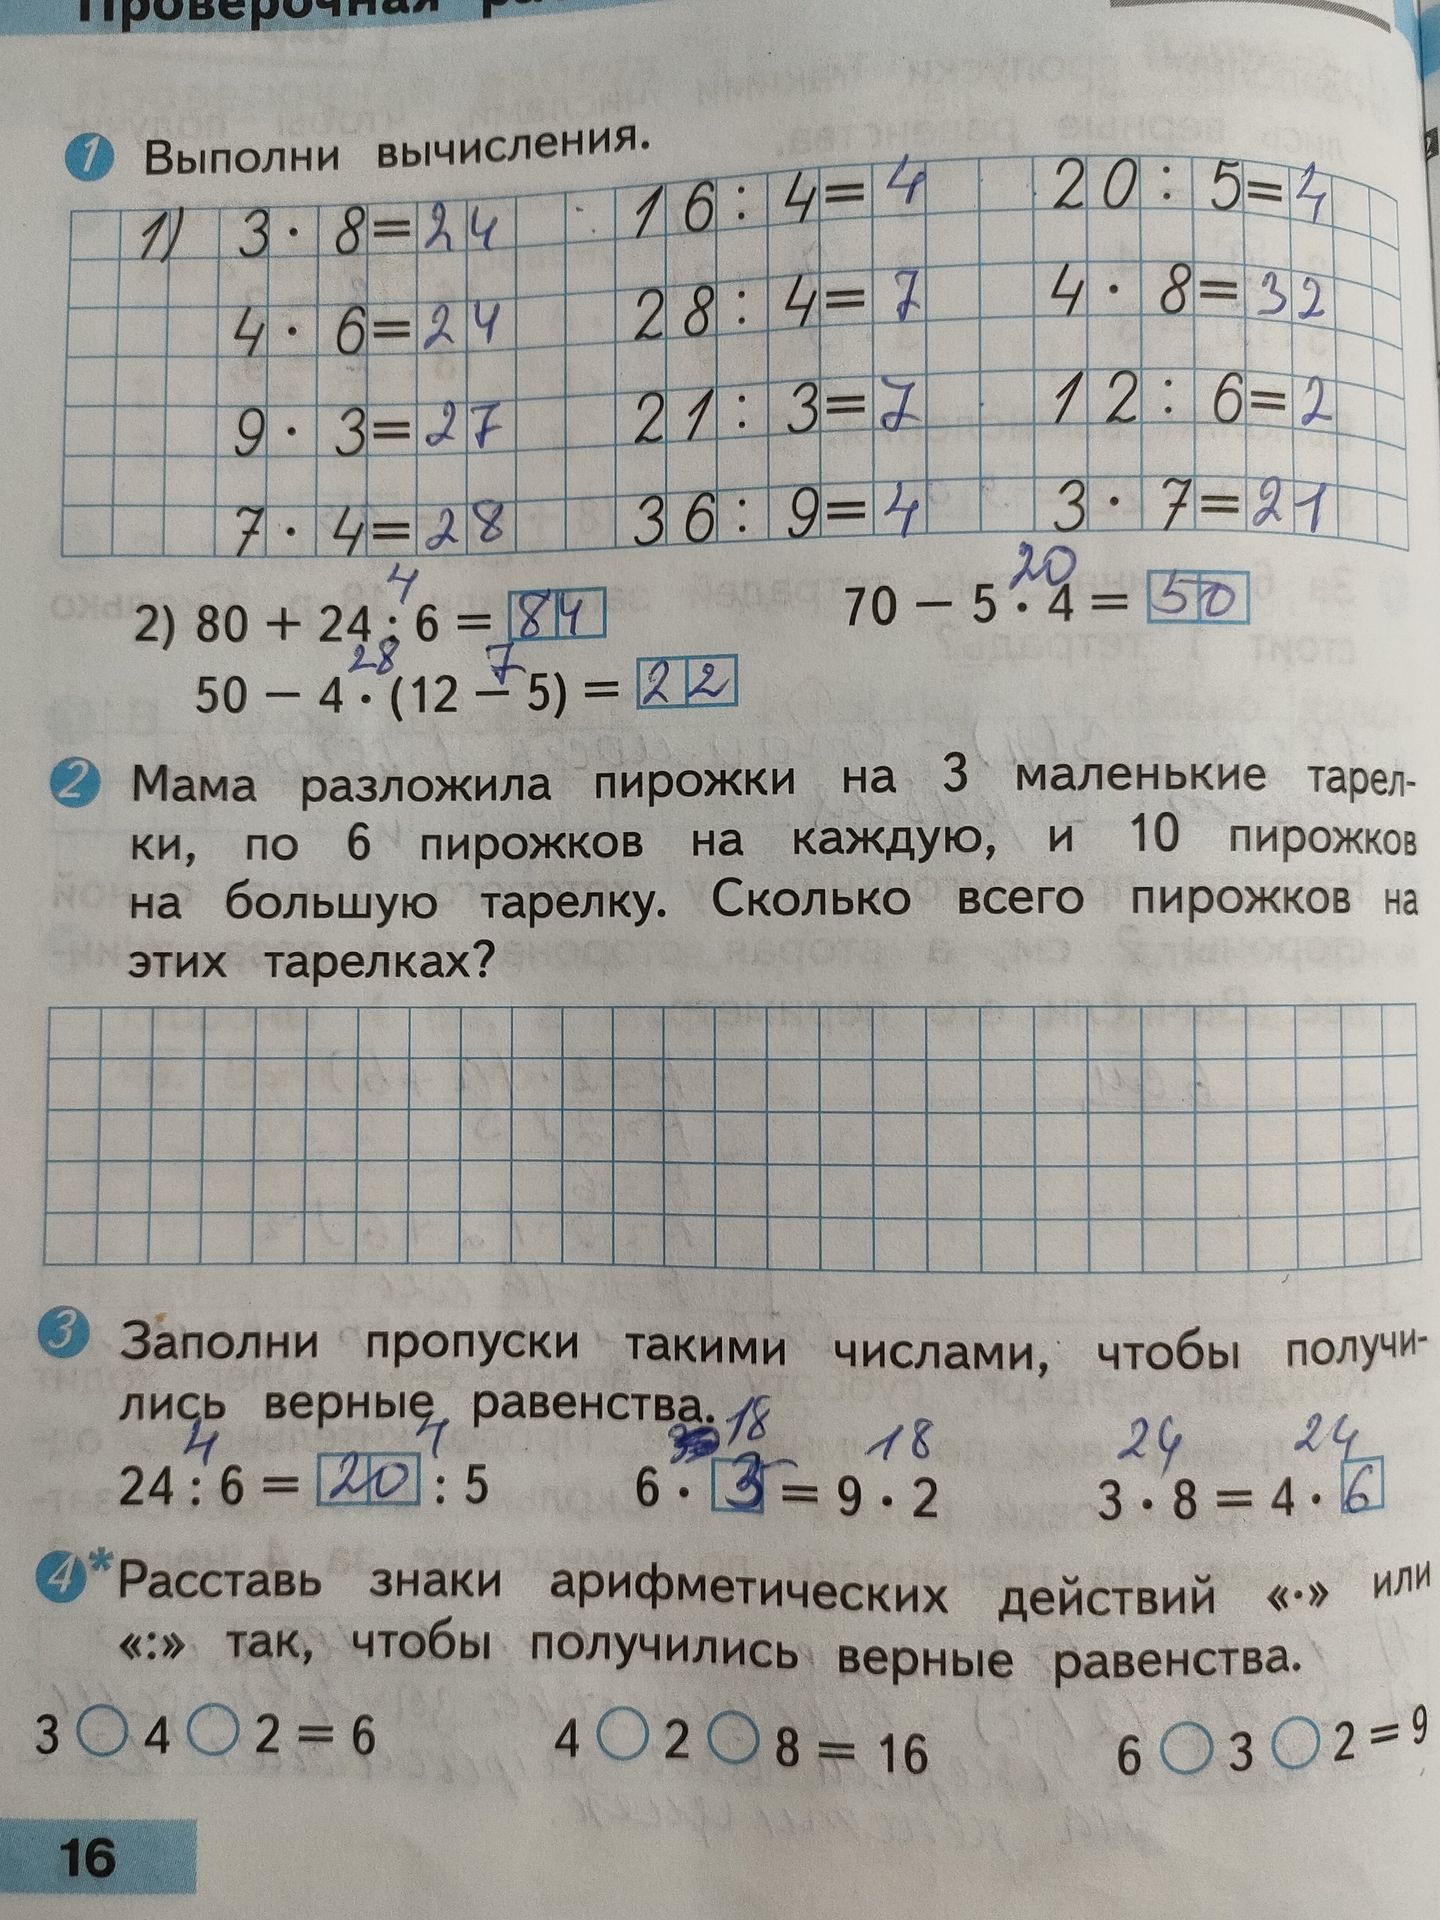 Проверочная
1 Выполни вычисления.
1) 3 · 8 = 24 16 : 4 = 4 20 : 5 = 4
4 · 6 = 24 28 : 4 = 7 4 · 8 = 32
9 · 3 = 27 21 : 3 = 7 12 : 6 = 2
7 · 4 = 28 36 : 9 = 4 3 · 7 = 21
4 20
2) 80 + 24 : 6 = 84 70 − 5 · 4 = 50
28 7
50 − 4 · (12 − 5) = 22
2 Мама разложила пирожки на 3 маленькие тарел-
ки, по 6 пирожков на каждую, и 10 пирожков
на большую тарелку. Сколько всего пирожков на
этих тарелках?
3 Заполни пропуски такими числами, чтобы получи-
лись верные равенства.
4 4 18 18 24 24
24 : 6 = 20 : 5 6 · 3 = 9 · 2 3 · 8 = 4 · 6
4* Расставь знаки арифметических действий «·» или
«:» так, чтобы получились верные равенства.
3 4 2 = 6 4 2 8 = 16 6 3 2 = 9
16